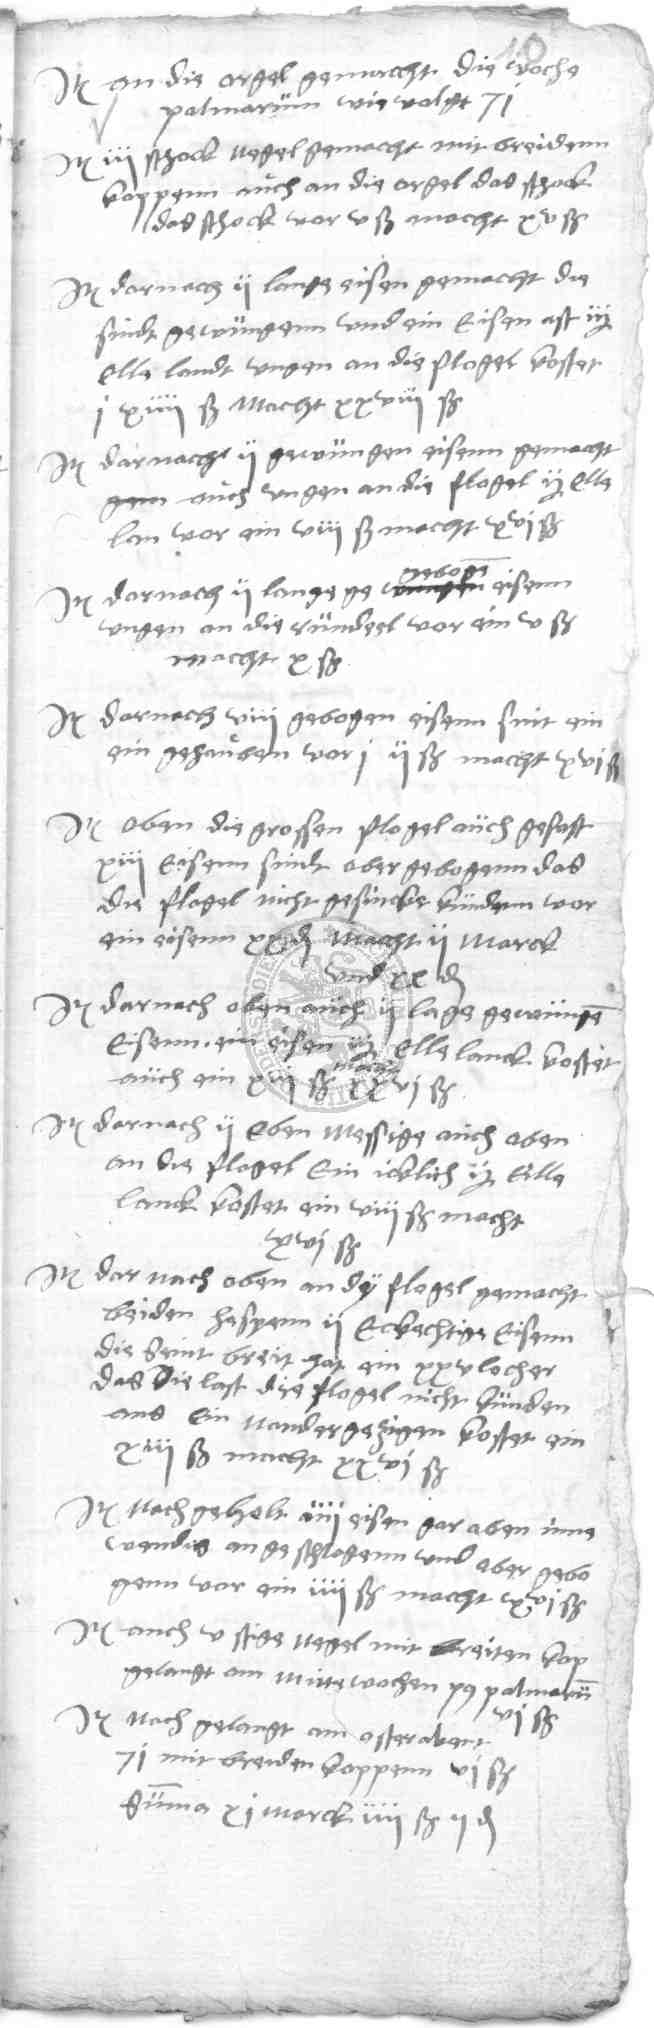 10
Itℓ an die orgel gemacht die woche
palmarum wie volget 71
Itℓ iii schock negel gemacht mit breidenn
koppenn auch an die orgel das schock
das schock vor v ß macht xv ß
Itℓ darnach ii lange eisen gemacht die
sindt gewungenn vnd ein Eisen ist
Elle landt vngen an die flogel kostet
j xiiii ß Macht xxviii ß
Itℓ darnach ii gewungen eisenn gemacht
auch vngen an die flogel Elle
lan vor ein viii ß macht xvi ß
Itℓ darnach ii lange ge gebogē eisenn
vngen an die rundeel vor ein v ß
macht x ß
Itℓ darnach viii gebogen eisenn sint ein
ein gehauben vor j ii ß macht xvi ß
Itℓ oben die grossen flogel auch gefast
xiii Eisenn sindt ober gebogenn das
die flogel nicht gesincke kundenn vor
ein eisenn xx ₰ Macht ii Marck
vnd xx ₰
Itℓ darnach oben auch ii lage gewungē
Eisenn ein eisen Elle lanck kostet
auch ein xiii ß macht xxvi ß
Itℓ darnach ii Eben Messige auch oben
an die flogel Ein icklich Elle
lanck kostet ein viii ß macht
xvi ß
Itℓ dar nach oben an dy flogel gemacht
beiden hespenn ii Eckechtige Eisenn
die seint breit hat ein xxv locher
das die last die flogel nicht kunden
aus Ein nander gezigen kostet ein
xiii ß macht xxvi ß
Itℓ noch geholt iiii eisen gar aben inne
wendig angeschlagenn vnd ober gebo
genn vor ein iiii ß macht xvi ß
Itℓ auch v stige negel mit breiten kop
gelangt am Mittewochen p9 palmarū
vi ß
Itℓ Noch gelangt am osterabent
71 mit breiden koppenn vi ß
Sūma xi Marck iiii ß ii ₰